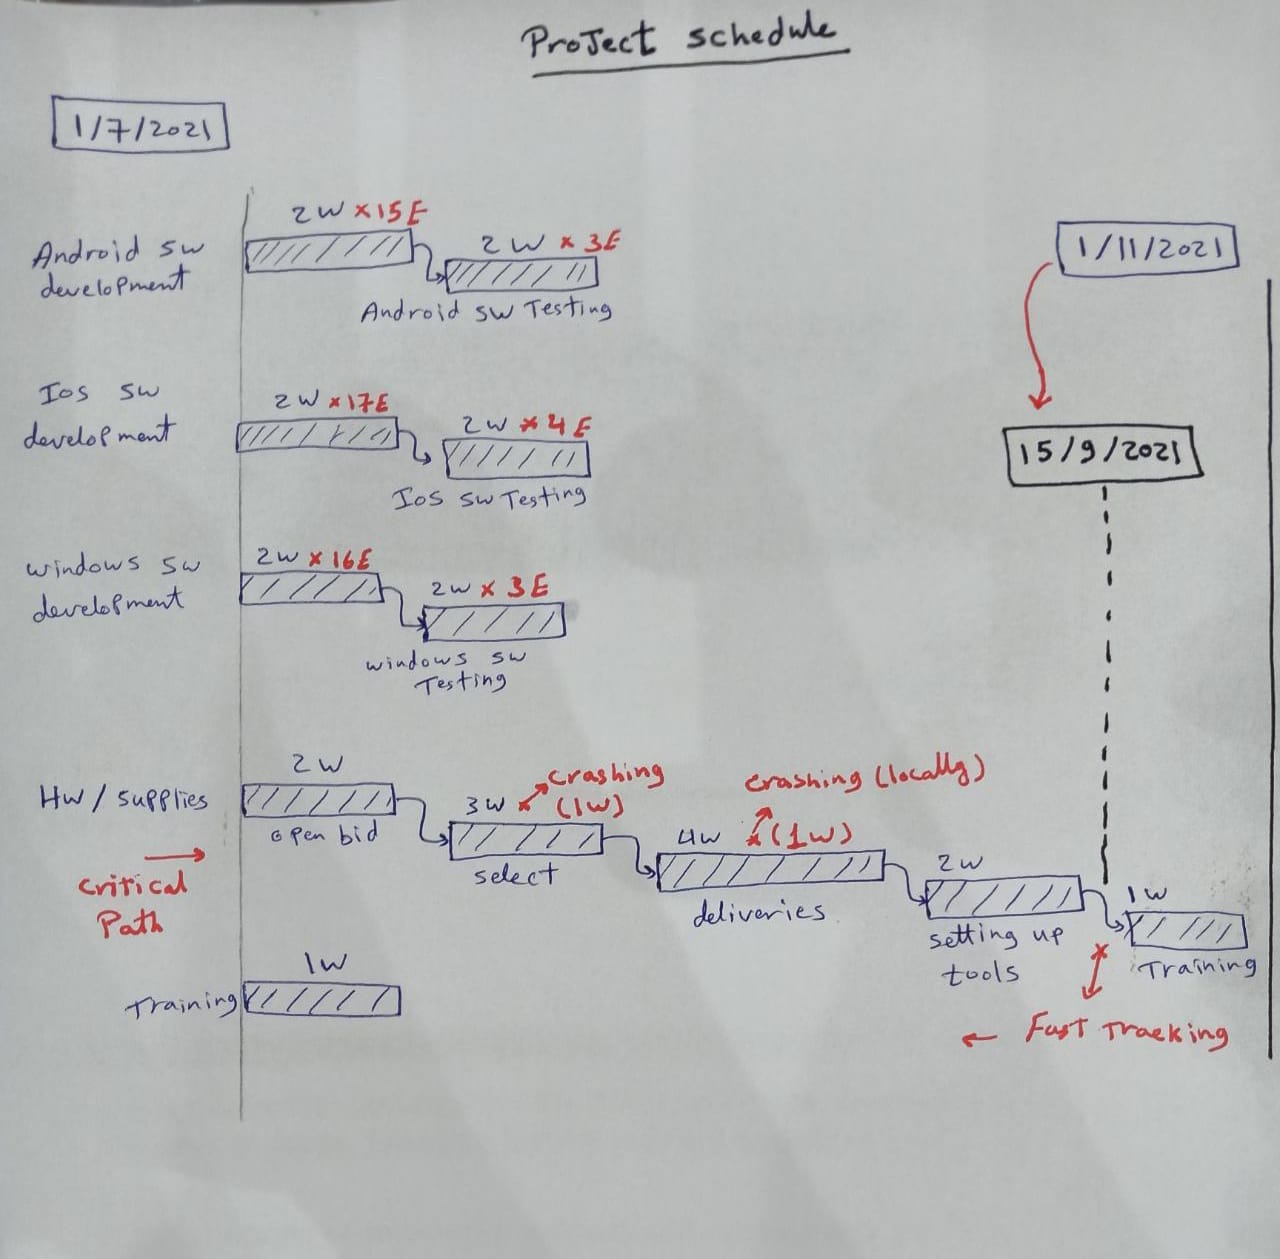 ProJect schedule
1/7/2021
2W x15E
Android SW
development
2W x 3E
Android SW Testing
1/11/2021
Ios SW
development
2W x17E
2W x 4E
Ios SW Testing
15/9/2021
windows SW
development
2W x 16E
2W x 3E
windows SW
Testing
HW / supplies
2W
open bid
3W x crashing
(1W)
select
crashing (locally)
4W x (1W)
deliveries
2W
setting up
tools
1W
Training
critical
Path
Fast Tracking
Training
1W